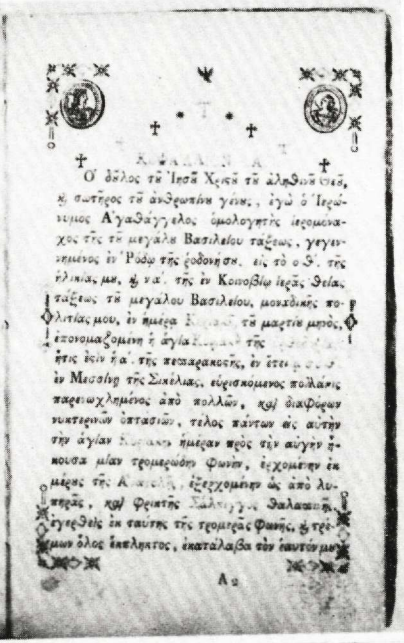 Τ
ΚΕΦΑΛΑΙΟΝ Α
Ο' δοῦλος τοῦ Ἰησοῦ Χριστοῦ τοῦ ἀληθινοῦ Θεοῦ,
ϗ σωτῆρος τοῦ ἀνθρωπίνου γένους, ἐγὼ ὁ Ἱερώ-
νυμος Α'γαθάγγελος ὁμολογητὴς ἱερομόνα-
χος τῆς τοῦ μεγάλου Βασιλείου τάξεως, γεγεν-
νημένος ἐν Ῥόδῳ τῆς ῥοδονήσου, εἰς τὸ οθ΄. τῆς
ἡλικίας μου, ϗ να΄. τῆς ἐν Κοινοβίῳ ἱερᾶς θείας
τάξεως τοῦ μεγάλου Βασιλείου, μοναδικῆς πο-
λιτίας μου, ἐν ἡμέρᾳ τοῦ μαρτίου μηνὸς,
ἐπονομαζομένη ἡ ἁγία τῆς
ἥτις ἐστὶν ἡ α΄. τῆς τεσσαρακοστῆς, ἐν ἔτει
ἐν Μεσσίνῃ τῆς Σικελίας, εὑρισκόμενος πολλάκις
παρενωχλημένος ἀπὸ πολλῶν, καὶ διαφόρων
νυκτερινῶν ὀπτασιῶν, τέλος πάντων ὡς αὐτὴν
τὴν ἁγίαν Κυριακὴν ἡμέραν πρὸς τὴν αὐγὴν ἤ-
κουσα μίαν τρομερώδη φωνὴν, ἐρχομένην ἐκ
μέρους τῆς Ἀνατολῆς, ἐξερχομένην ὡς ἀπὸ λυ-
πηρᾶς, καὶ φρικτῆς Σάλπιγγος
ἐγερθεὶς ἐκ ταύτης τῆς τρομερᾶς φωνῆς, ϗ τρέ-
μων ὅλος ἔκπληκτος, ἐκατάλαβα τὸν ἑαυτόν μου
Α 2